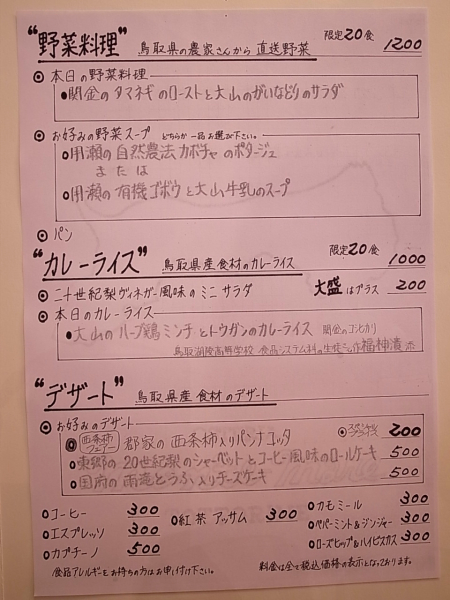 “野菜料理” 鳥取県の農家さんから直送野菜 限定20食 1200
◎本日の野菜料理
●関金のタマネギのローストと大山のがいなどりのサラダ
◎お好みの野菜スープ どちらか一品お選び下さい。
○用瀬の自然農法カボチャのポタージュ
または
○用瀬の有機ゴボウと大山牛乳のスープ
◎パン
“カレーライス” 鳥取県産食材のカレーライス 限定20食 1000
◎二十世紀梨ヴィネガー風味のミニサラダ 大盛はプラス 200
◎本日のカレーライス
●大山のハーブ鶏ミンチとトウガンのカレーライス 関金のコシヒカリ
鳥取湖陵高等学校 食品システム科の生徒さん作 福神漬 添
“デザート” 鳥取県産食材のデザート
◎お好みのデザート
◎西条柿フェアー 郡家の西条柿入りパンナコッタ 200
●東郷の20世紀梨のシャーベットとコーヒー風味のロールケーキ 500
●国府の雨滝とうふ入りチーズケーキ 500
○コーヒー 300
○エスプレッソ 300
○カプチーノ 500
○紅茶アッサム 300
○カモミール 300
○ペパーミント&ジンジャー 300
○ローズヒップ&ハイビスカス 300
食品アレルギーをお持ちの方はお申し付け下さい。
料金は全て税込価格の表示となっております。